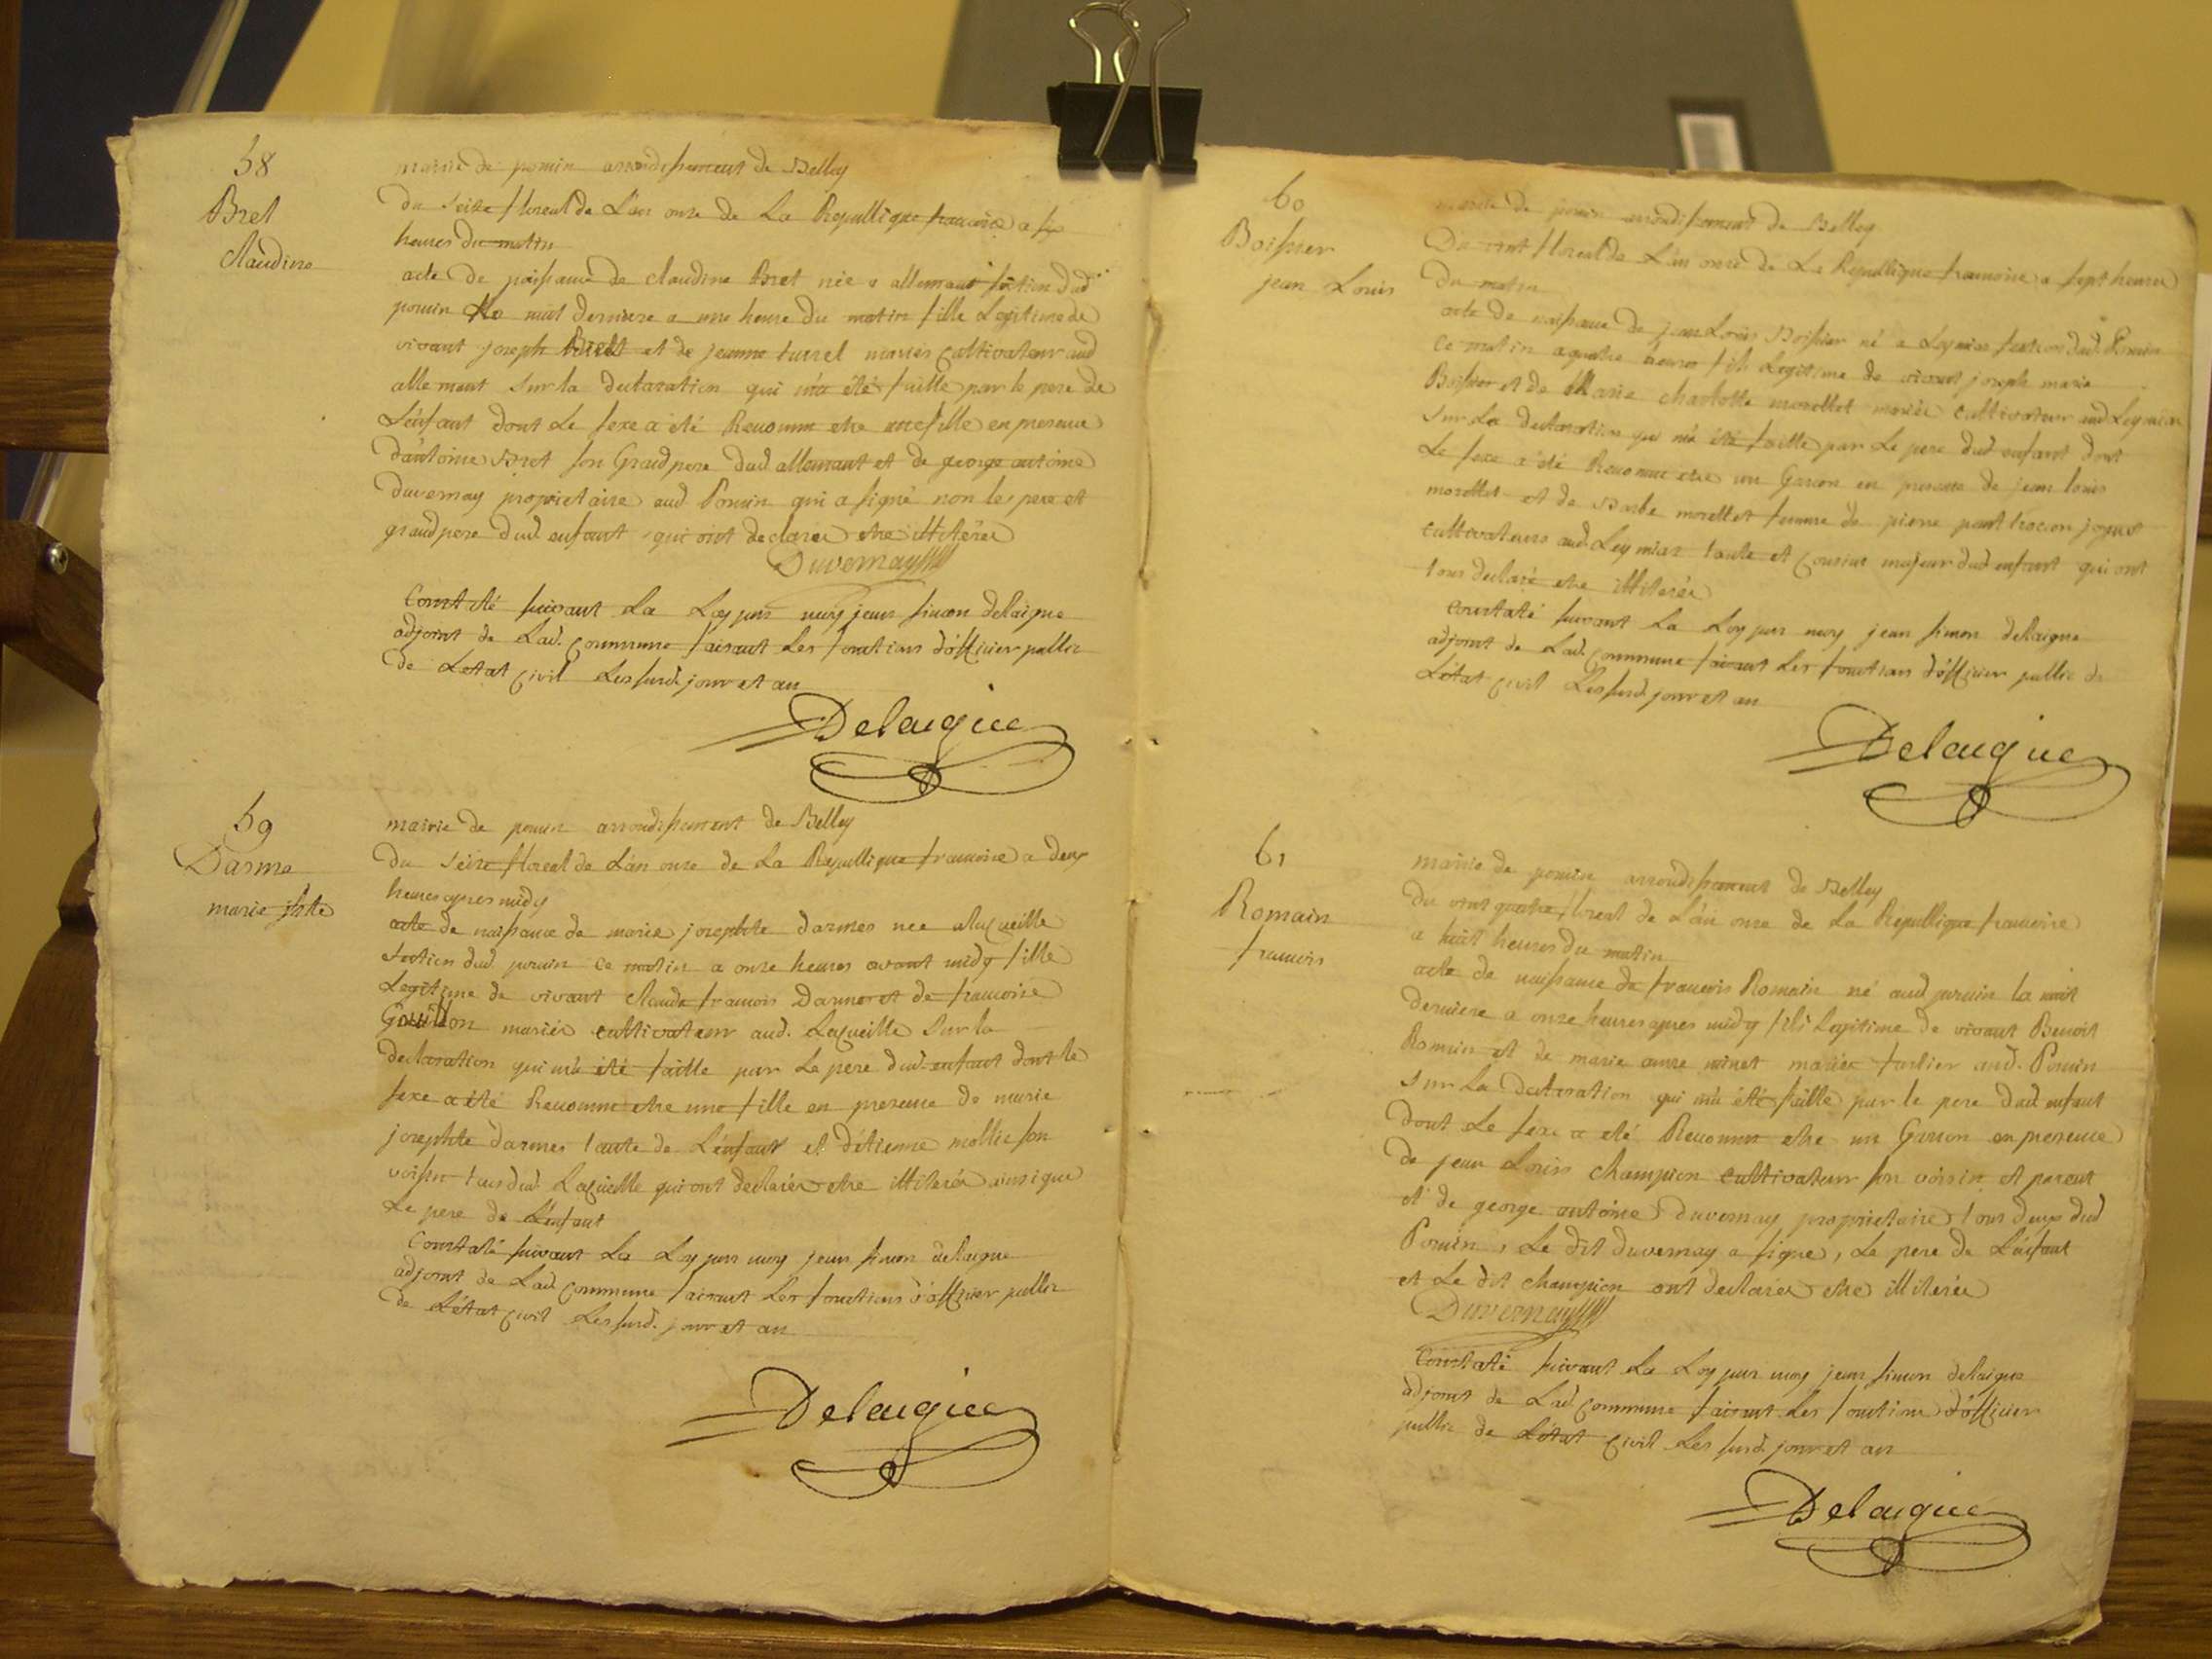 58
Bret
Claudine
mairie de pomin arrondissement de Belley
du seize floreal de L'an onze de La Republlique francoise a six
heures du matin
acte de naissance de claudine Bret née a allemant section dud.
pomin La nuit derniere a une heure du matin fille Legitime de
vivant joseph Bret et de jeanne turrel mariés Cultivateur aud
allemant sur la declaration qui m'a été faitte par le pere de
L'enfant dont Le sexe a été Reconnu etre une fille en presence
d'antoine Bret son Grand pere dud. allemant et de george antoine
Duvernay proprietaire aud Pomin qui a signé non les pere et
grand pere dud. enfant qui ont declarés etre illiterés
Duvernay
Constaté suivant La Loy par moy jean simon delaigue
adjoint de Lad. Commune faisant Les fonctions d'officier public
de L'etat Civil Les susd. jour et an
Delaigue
59
Darme
marie jphte
mairie de pomin arrondissement de Belley
du seize floreal de L'an onze de La Republlique francoise a deux
heures apres midy
acte de naissance de marie josephte darmes née a Laqueille
section dud. pomin ce matin a onze heures avant midy fille
Legitime de vivant Claude francois Darme et de francoise
mariés cultivateur aud. Laqueille sur la
declaration qui m'a été faitte par Le pere dud. enfant dont le
sexe a été Reconnu etre une fille en presence de marie
josephte darmes tante de L'enfant et d'etienne mollie son
voisin tous dud. Laqueille qui ont declarés etre illiterés ainsi que
Le pere de L'enfant
Constaté suivant La Loy par moy jean simon delaigue
adjoint de Lad. Commune faisant Les fonctions d'officier public
de L'état Civil Les susd. jour et an
Delaigue
60
Boissier
jean Louis
mairie de pomin arrondissement de Belley
Du vint floreal de L'an onze de La Republlique francoise a sept heures
du matin
acte de naissance de jean Louis Boissier né a Leymiat section dud. Pomin
ce matin a quatre heures fils Legitime de vivant joseph marie
Boissier et de Marie charlotte morellet mariés cultivateur aud Leymiat
sur La declaration qui m'a été faitte par Le pere dud enfant dont
Le sexe a été Reconnu etre un Garcon en presence de jean louis
morellet et de Barbe morellet femme de pierre
cultivateurs aud. Leymiat tante et Cousins majeur dud enfant qui ont
tous declaré etre illiterés
Constaté suivant La Loy par moy jean simon delaigue
adjoint de Lad. Commune faisant Les fonctions d'officier public de
L'état Civil Les susd. jour et an
Delaigue
61
Romain
francois
mairie de pomin arrondissement de Belley
Du vint quatre floreal de L'an onze de La Republlique francoise
a huit heures du matin
acte de naissance de francois Romain né aud pomin la nuit
derniere a onze heures apres midy fils Legitime de vivant Benoit
Romain et de marie anne minet mariés aud. Pomin
sur La declaration qui m'a été faitte par le pere dud enfant
dont Le sexe a été Reconnu etre un Garcon en presence
de jean Louis Champion cultivateur son voisin et parent
et de george antoine Duvernay proprietaire tous deux dud
Pomin, Le dit duvernay a signé, Le pere de L'enfant
et Le dit champion ont declarés etre illiterés
Duvernay
Constaté suivant La Loy par moy jean simon delaigue
adjoint de Lad. Commune faisant Les fonctions d'officier
public de L'état Civil Les susd. jour et an
Delaigue